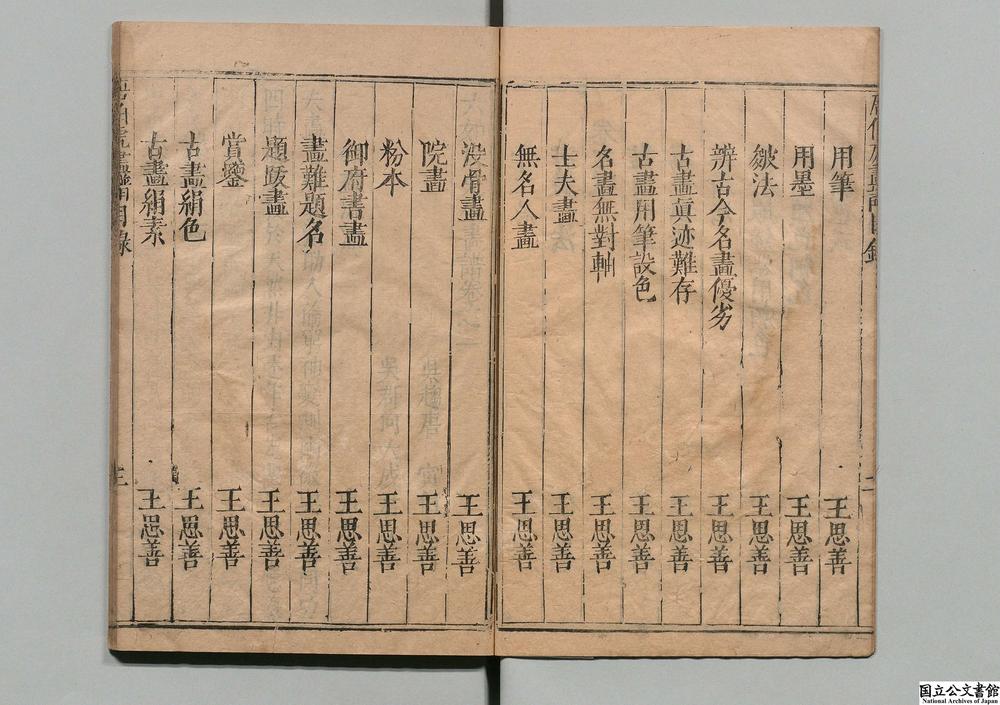 用筆 王思善
用墨 王思善
皴法 王思善
辨古今名畫優劣 王思善
古畫真迹難存 王思善
古畫用筆設色 王思善
名畫無對軸 王思善
士夫畫 王思善
無名人畫 王思善
没骨畫 王思善
院畫 王思善
粉本 王思善
御府書畫 王思善
畫難題名 王思善
題跋畫 王思善
賞鑒 王思善
古畫絹色 王思善
古畫絹素 王思善
目錄
三
国立公文書館
National Archives of Japan